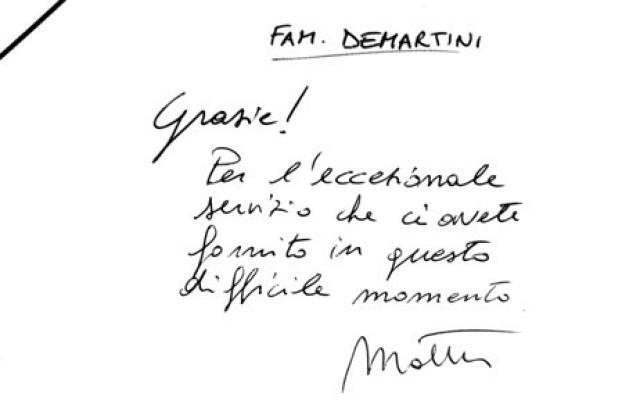 FAM. DEMARTINI
Grazie!
Per l'eccezionale
servizio che ci avete
fornito in questo
difficile momento